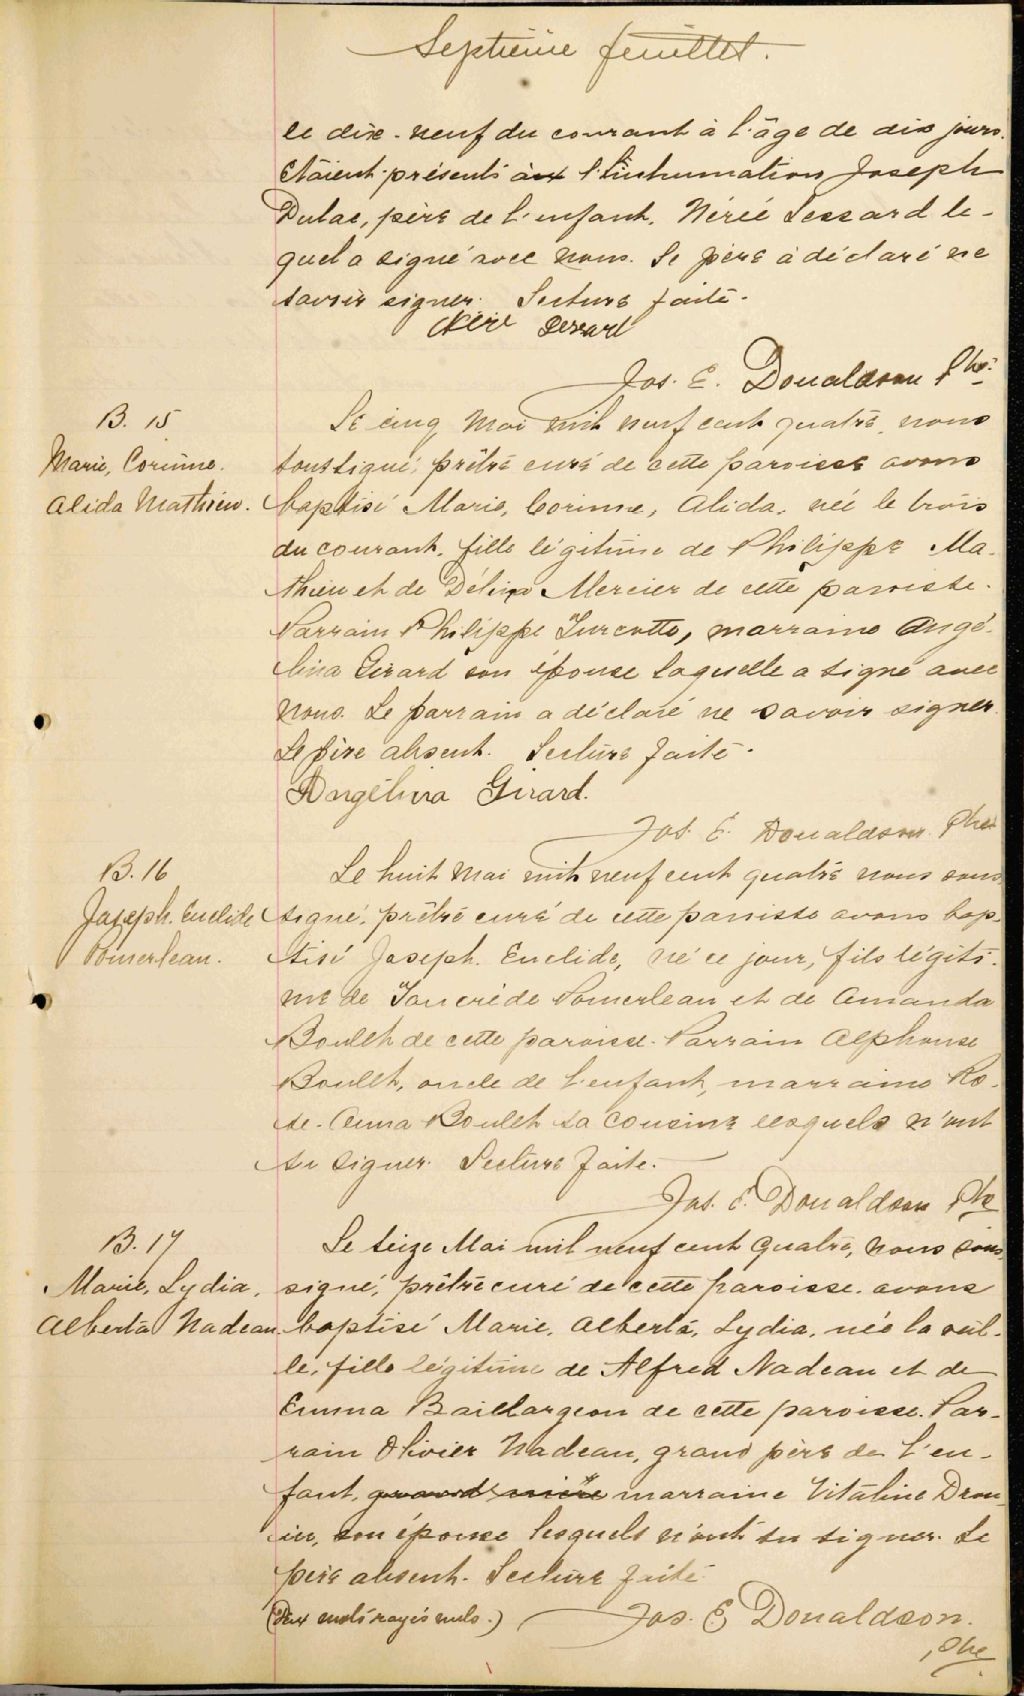 Septième feuillet.
le dix-neuf du courant à l'âge de dix jours.
Etaient présents à l'inhumation Joseph
Dulac, père de l'enfant, Nérée Lessard le-
quel a signé avec nous. Le père a déclaré ne
savoir signer. Lecture faite.
Néré Lessard
Jos. E. Donaldson Ptre
B. 15
Marie, Corinne.
Alida Mathieu.
Le cinq Mai mil neuf cent quatre, nous
soussigné, prêtre curé de cette paroisse avons
baptisé Marie, Corinne, Alida, née le trois
du courant, fille légitime de Philippe Ma-
thieu et de Délina Mercier de cette paroisse.
Parrain Philippe Turcotte, marraine Angé-
lina Girard son épouse laquelle a signé avec
nous. Le parrain a déclaré ne savoir signer.
Le père absent. Lecture faite.
Angélina Girard.
Jos. E. Donaldson Ptre
B. 16
Joseph. Euclide
Pomerleau.
Le huit Mai mil neuf cent quatre nous sous-
signé, prêtre curé de cette paroisse avons bap-
tisé Joseph. Euclide, né ce jour, fils légiti-
me de Tancrède Pomerleau et de Amanda
Boulet de cette paroisse. Parrain Alphonse
Boulet, oncle de l'enfant, marraine Ro-
se-Anna Boulet sa cousine lesquels n'ont
su signer. Lecture faite.
Jos. E. Donaldson Ptre
B. 17
Marie, Lydia,
Alberta Nadeau.
Le seize Mai mil neuf cent quatre, nous sous-
signé, prêtre curé de cette paroisse, avons
baptisé Marie, Alberta, Lydia, née la veil-
le, fille légitime de Alfred Nadeau et de
Emma Baillargeon de cette paroisse. Par-
rain Olivier Nadeau, grand père de l'en-
fant, grand'mère marraine Vitaline Drou-
in, son épouse lesquels n'ont su signer. Le
père absent. Lecture faite.
(Deux mots rayés nuls.) Jos. E Donaldson.
Ptre